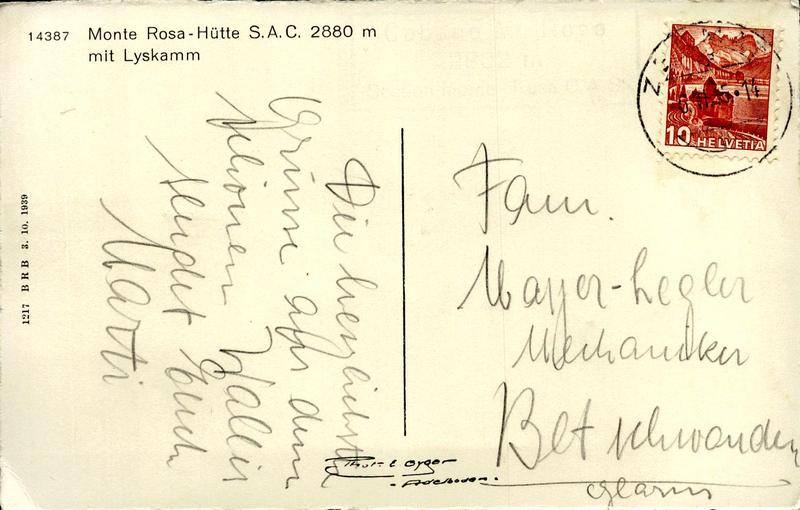 14387 Monte Rosa-Hütte S.A.C. 2880 m
mit Lyskamm
1217 BRB 3. 10. 1939
Die herzlichsten
Grüsse aus dem
schönen Wallis
sendet Euch
Marti
10 HELVETIA
Fam.
Mayer-Legler
Mechaniker
Betschwanden
Glarus
Gyger
Adelboden.